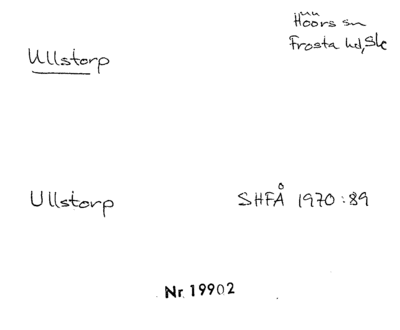 Höörs sn
Frosta hd, Sk
Ullstorp
Ullstorp SHFÅ 1970:89
Nr 19902